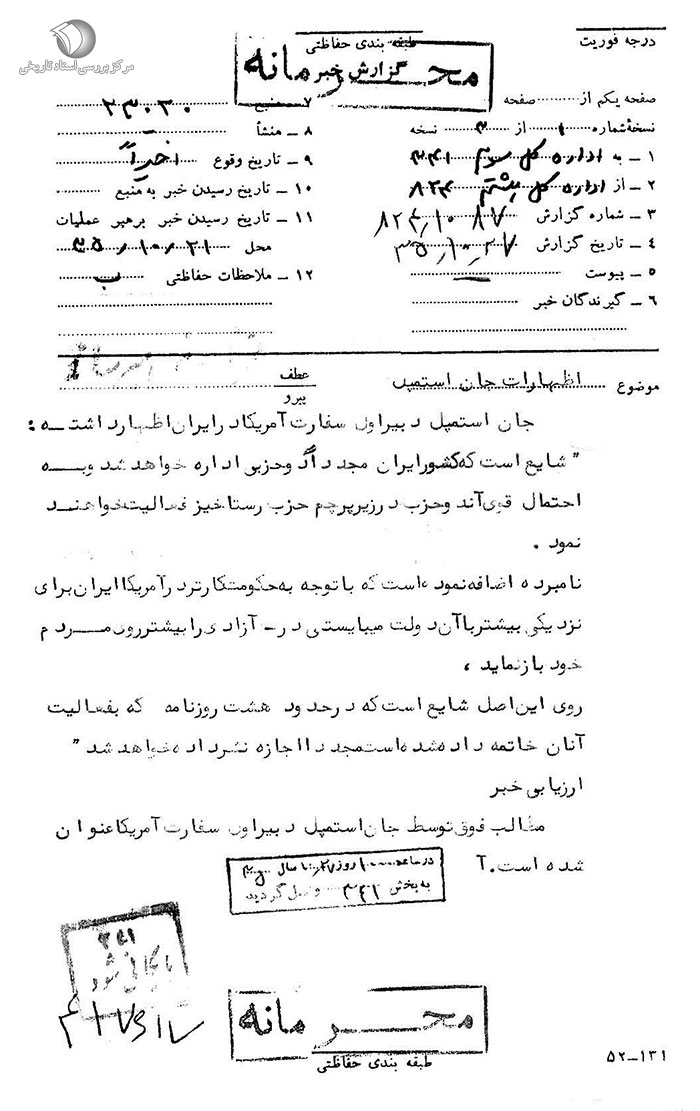 مرکز بررسی اسناد تاریخی
درجه فوریت
طبقه بندی حفاظتی
محرمانه
گزارش خبر
صفحه یکم از صفحه
نسخهٔ شماره ۱ از ۳ نسخه
۱ ـ به اداره کل سوم ۳۴۱
۲ ـ از اداره کل هشتم ۸۲۴
۳ ـ شماره گزارش
۴ ـ تاریخ گزارش
۵ ـ پیوست
۶ ـ گیرندگان خبر
۷ ـ منبع ۲۳۰۳۰
۸ ـ منشأ
۹ ـ تاریخ وقوع اخیراً
۱۰ ـ تاریخ رسیدن خبر به منبع
۱۱ ـ تاریخ رسیدن خبر برهبر عملیات
محل ۳۵/۱۰/۲۱
۱۲ ـ ملاحظات حفاظتی ب
موضوع اظهارات جان استمپل
عطف
پیرو
جان استمپل دبیراول سفارت آمریکا در ایران اظهار داشته :
" شایع است که کشور ایران مجدداً دو حزبی اداره خواهد شد و به
احتمال قوی آن دو حزب در زیر پرچم حزب رستاخیز فعالیت خواهند
نمود .
نامبرده اضافه نموده است که با توجه به حکومت کارتر در آمریکا ایران برای
نزدیکی بیشتر با آن دولت میبایستی در ـ آزادی را بیشتر روی مردم
خود باز نماید ،
روی این اصل شایع است که در حدود هشت روزنامه که بفعالیت
آنان خاتمه داده شده است مجددا اجازه نشر داده خواهد شد "
ارزیابی خبر
مطالب فوق توسط جان استمپل دبیراول سفارت آمریکا عنوان
شده است. آ
به بخش ۳۴۱ واصل گردید
۳۴۱
بایگانی شود
محرمانه
طبقه بندی حفاظتی
۵۲ـ۱۳۱